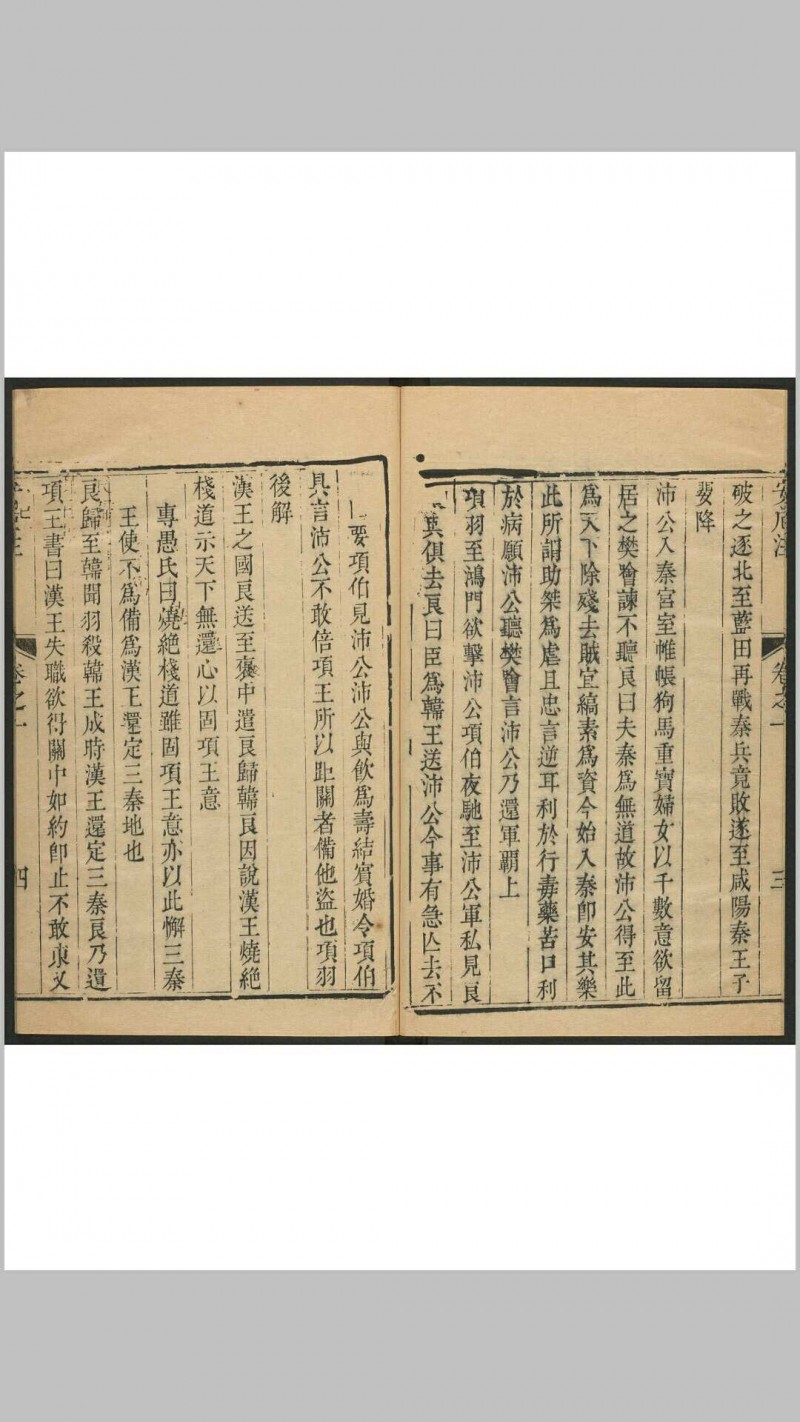 破之逐北至藍田再戰秦兵竟敗遂至咸陽秦王子
嬰降
沛公入秦宮室帷帳狗馬重寶婦女以千數意欲留
居之樊噲諫不聽良曰夫秦爲無道故沛公得至此
爲天下除殘去賊宜縞素爲資今始入秦卽安其樂
此所謂助桀爲虐且忠言逆耳利於行毒藥苦口利
於病願沛公聽樊噲言沛公乃還軍覇上
項羽至鴻門欲擊沛公項伯夜馳至沛公軍私見良
俱去良曰臣爲韓王送沛公今事有急亾去不
卷之一
三
要項伯見沛公沛公與飲爲壽結賓婚令項伯
具言沛公不敢倍項王所以距關者備他盜也項羽
後解
漢王之國良送至褒中遣良歸韓良因說漢王燒絕
棧道示天下無還心以固項王意
專愚氏曰燒絕棧道雖固項王意亦以此懈三秦
王使不爲備爲漢王還定三秦地也
良歸至韓聞羽殺韓王成時漢王還定三秦良乃遺
項王書曰漢王失職欲得關中如約卽止不敢東又
卷之一
四